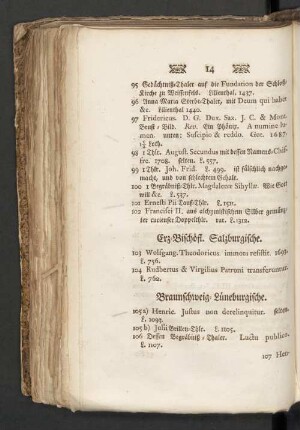 14
95 Gedächtniß-Thaler auf die Fundation der Schloß-
Kirche zu Weissenfels. Lilienthal. 1437.
96 Anna Maria Sterbe-Thaler, mit Deum qui habet
&c. Lilienthal 1440.
97 Fridericus. D. G. Dux. Sax. J. C. & Mont.
Brust-Bild. Rev. Ein Phönix. A numine lu-
men. unten: Suscipio & reddo. Goe. 1687.
1½ Loth.
98 1 Thlr. August. Secundus mit dessen Namens-Chif-
fre. 1702. selten. L. 557.
99 1 Thlr. Joh. Frid. L. 499. ist fälschlich nachge-
macht, und von schlechten Gehalt.
100 1 Begräbniß-Thlr. Magdalenæ Sibyllæ. Wie Gott
will &c. L. 531.
101 Ernesti Pii Tauf-Thlr. L. 1521.
102 Francisci II. aus alchymistischem Silber gemünz-
ter rareste Doppelthlr. rar. L. 1311.
Erz-Bischöfl. Salzburgische.
103 Wolfgang. Theodoricus immotu resistit. 1693.
L. 756.
104 Rudbertus & Virgilius Patroni transferuntur.
L. 762.
Braunschweig-Lüneburgische.
105a) Henric. Justus non derelinquitur. selten.
L. 1093.
105b) Julii Brillen-Thlr. L. 1105.
106 Dessen Begräbniß-Thaler. Luctu publico.
L. 1107.
107 Hen-